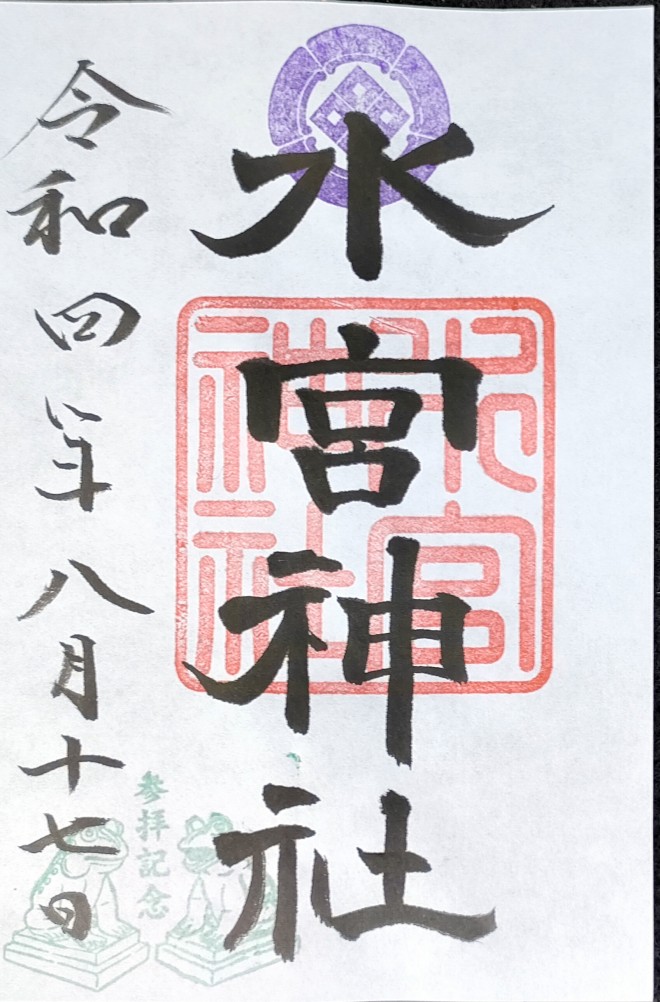 水宮神社
水宮神社
参拝記念
令和四年八月十七日